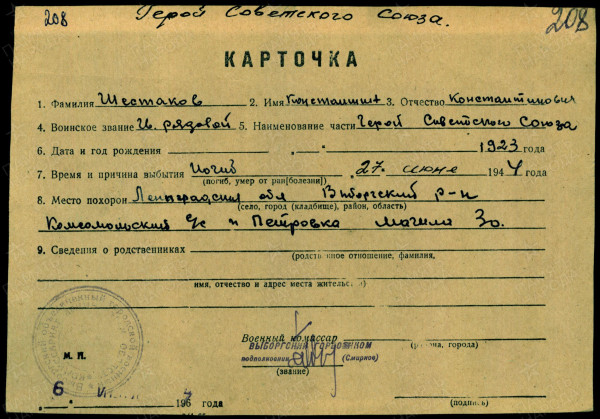 208 Герой Советского Союза. 208
КАРТОЧКА
1. Фамилия Шестаков 2. Имя Константин 3. Отчество Константинович
4. Воинское звание рядовой 5. Наименование части Герой Советского Союза
6. Дата и год рождения „ " 1923 года
7. Время и причина выбытия Погиб 27 июня 1944 года
(погиб, умер от ран[болезни])
8. Место похорон Ленинградская обл Выборгский р-н
(село, город (кладбище), район, область)
Комсомольский с/с п Петровка Могила
9. Сведения о родственниках
(родственное отношение, фамилия,
имя, отчество и адрес места жительства)
Военный комиссар
ВЫБОРГСКИЙ ГОРВОЕНКОМ
(района, города)
подполковник (Смирнов)
(звание)
М. П.
6 196 года
(подпись)